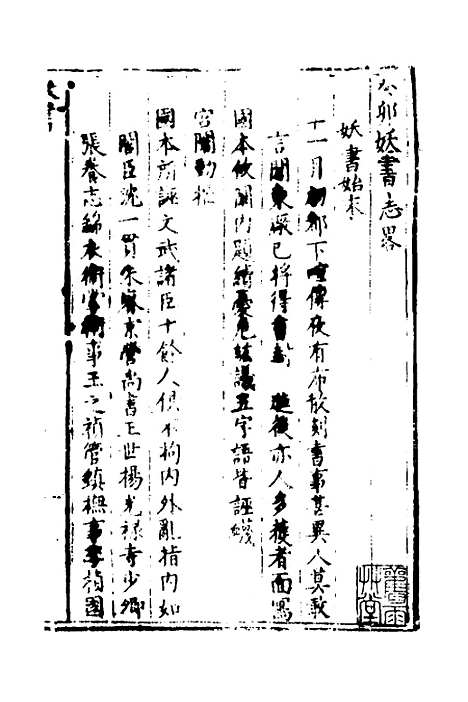 癸卯妖書志畧
妖書始末
十一月初都下喧傳夜有布散刻書事甚異人莫敢
言聞東厰已將得書封 進後亦人多獲者面寫
國本攸關內題續憂危竑議五字語皆誣衊
宮闈動摇
國本所誣文武諸臣十餘人俱不拘內外亂指內如
閣臣沈一貫朱賡京營尚書王世揚光禄寺少卿
張養志錦衣衛掌衛事王之禎管鎮撫事李禎國
妖書